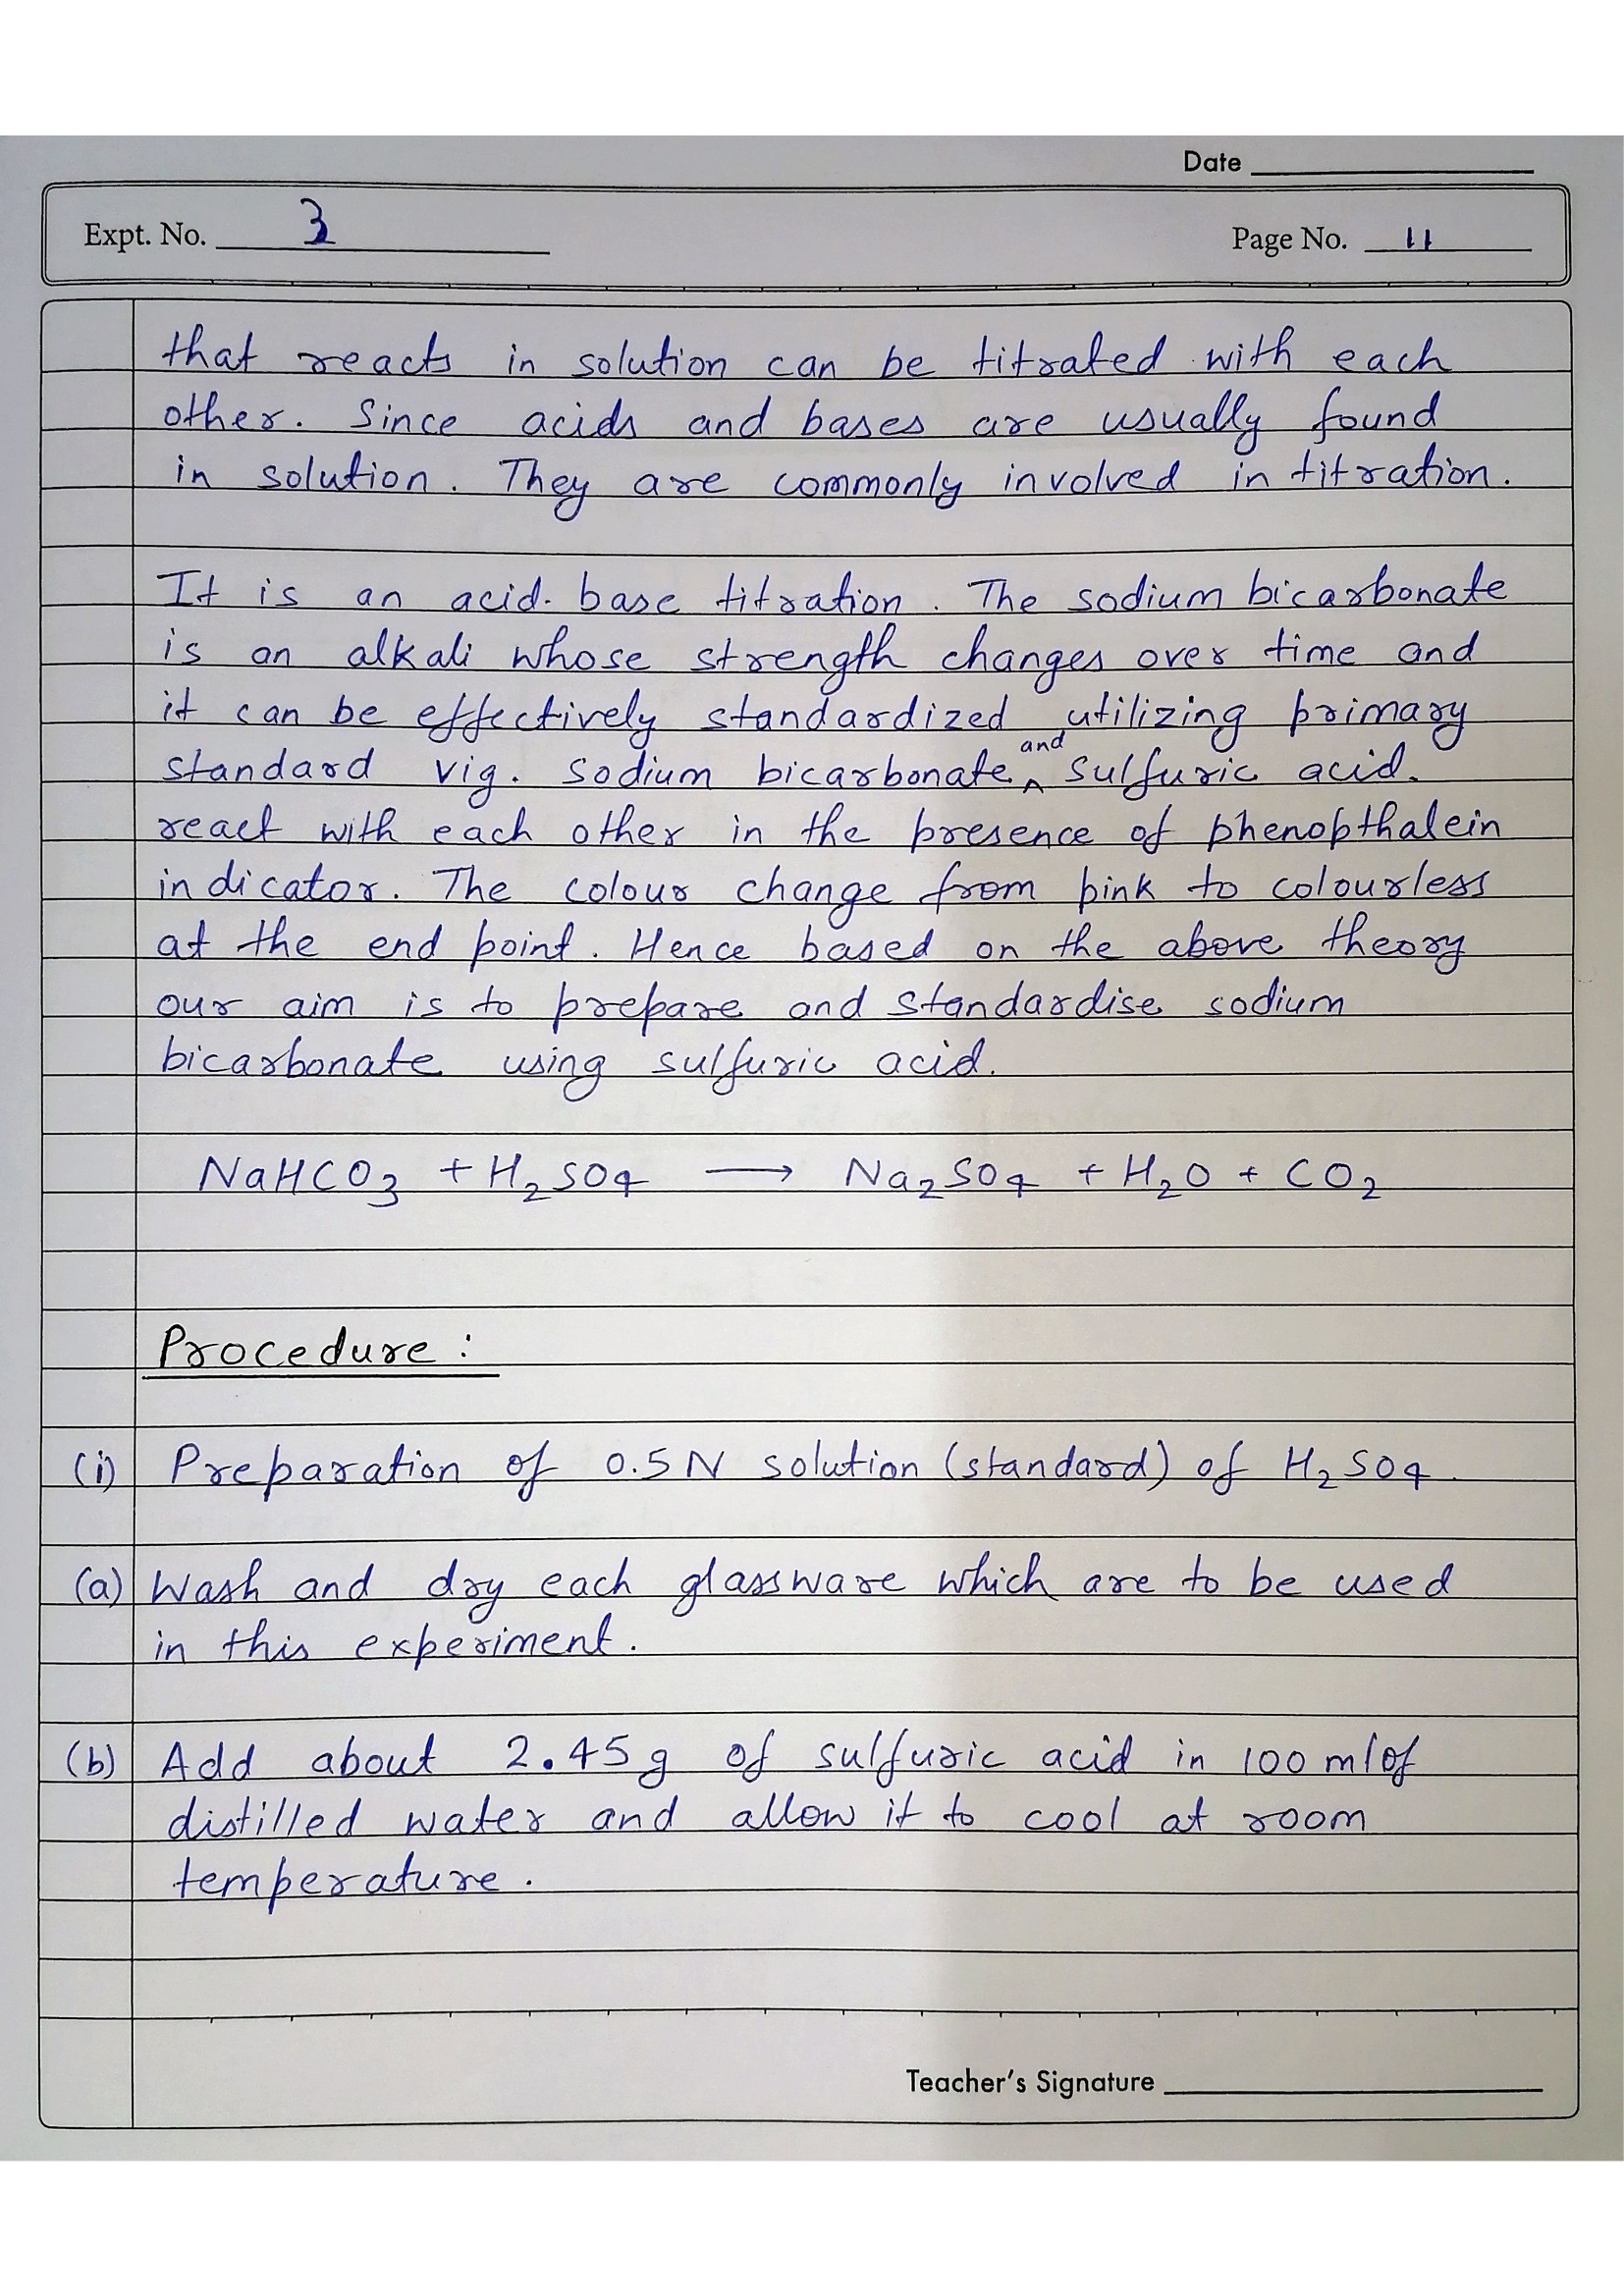 Date
Expt. No. 3
Page No. 11
that reacts in solution can be titrated with each
other. Since acids and bases are usually found
in solution. They are commonly involved in titration.
It is an acid-base titration. The sodium bicarbonate
is an alkali whose strength changes over time and
it can be effectively standardized utilizing primary
standard vig. Sodium bicarbonate and sulfuric acid.
react with each other in the presence of phenopthalein
indicator. The colour change from pink to colourless
at the end point. Hence based on the above theory
our aim is to prepare and standardise sodium
bicarbonate using sulfuric acid.
NaHCO₃ + H₂SO₄ ⟶ Na₂SO₄ + H₂O + CO₂
Procedure :
(i) Preparation of 0.5 N solution (standard) of H₂SO₄.
(a) Wash and dry each glassware which are to be used
in this experiment.
(b) Add about 2.45 g of sulfuric acid in 100 ml of
distilled water and allow it to cool at room
temperature.
Teacher's Signature